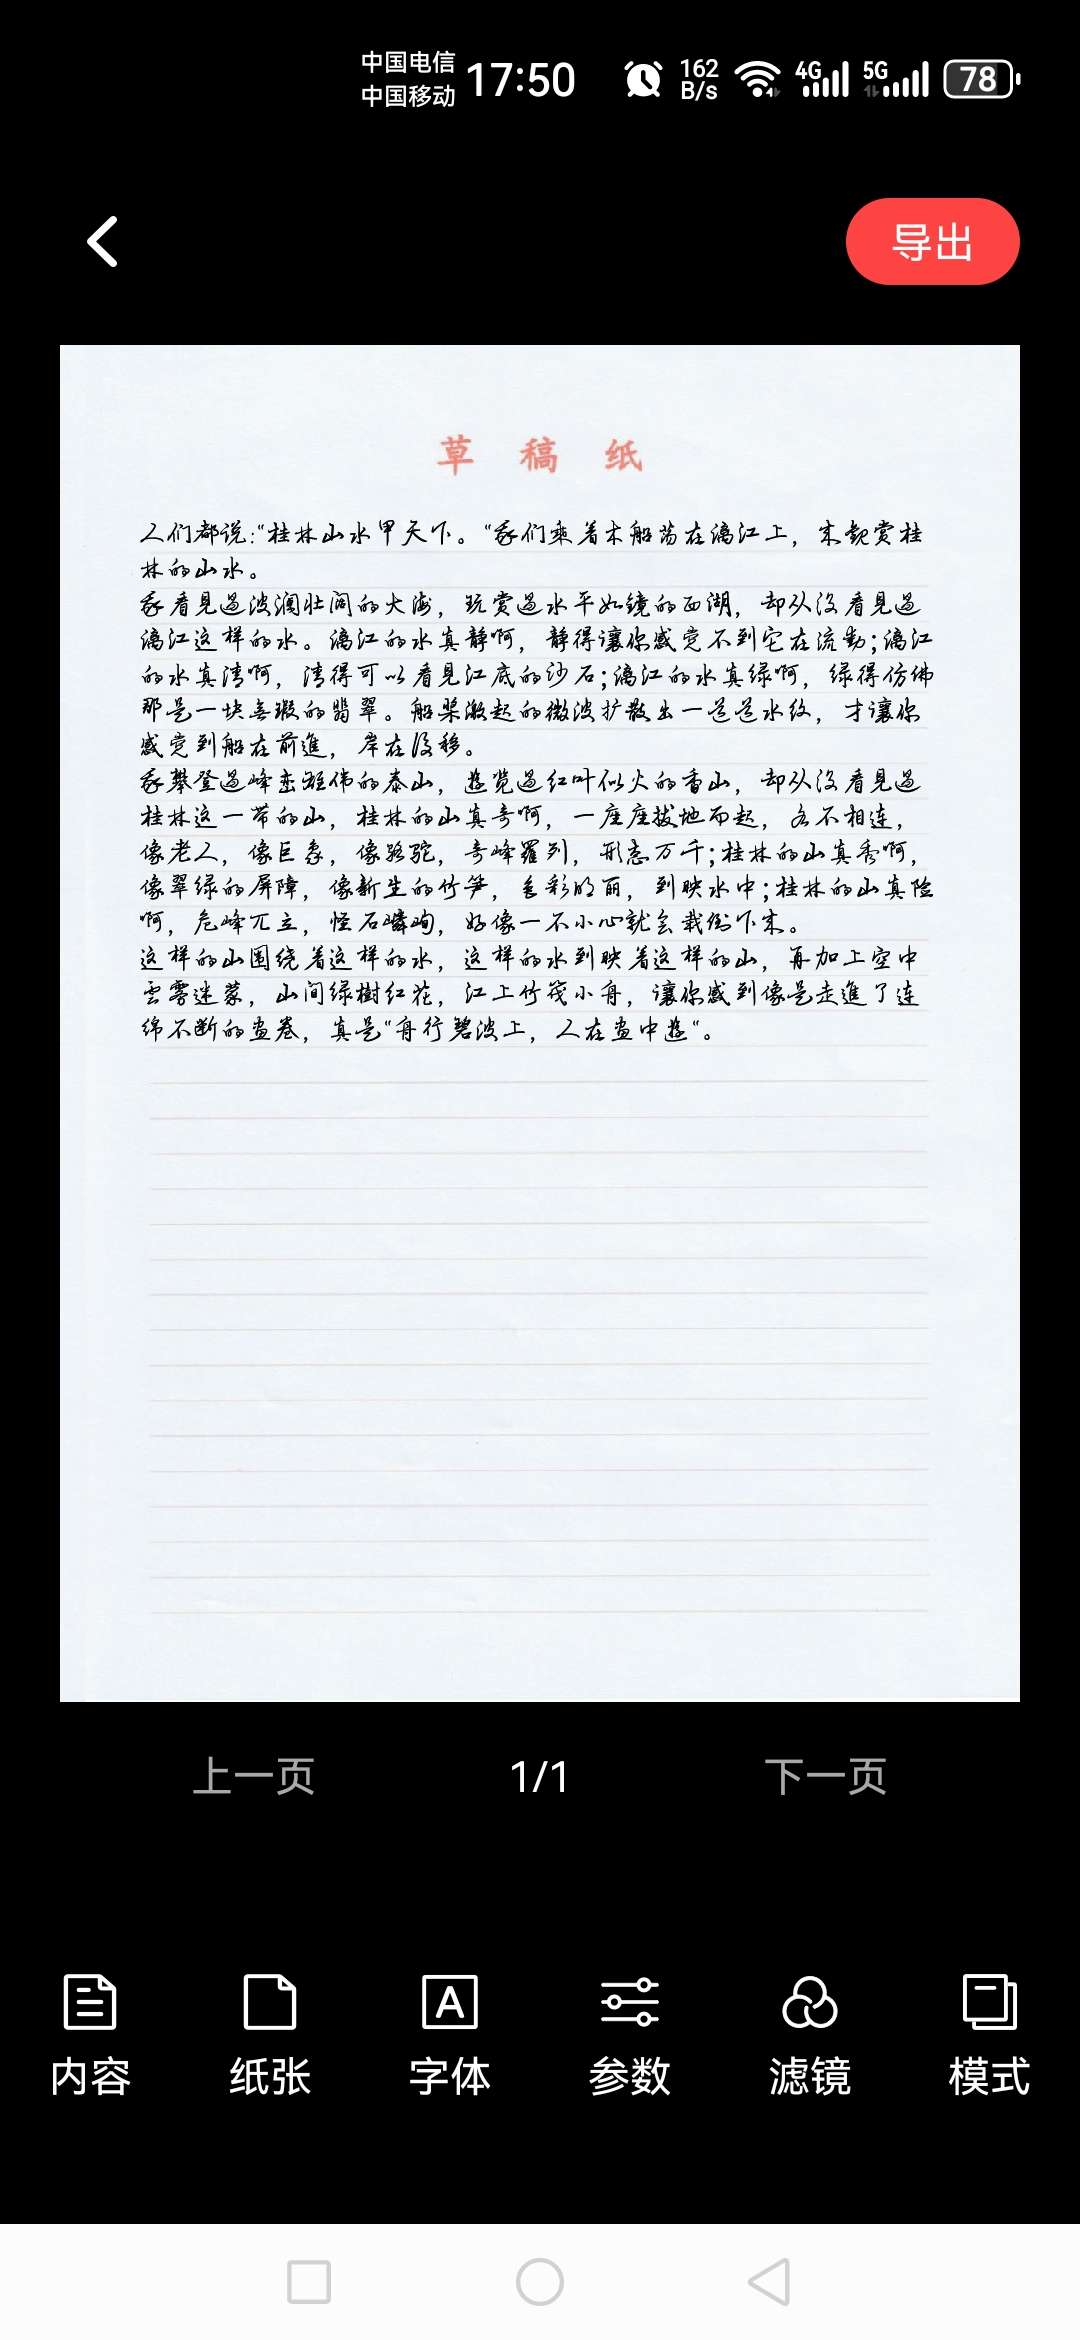 中国电信
中国移动
17:50
162
B/s
4G
5G
78
导出
草 稿 纸
人们都说:“桂林山水甲天下。“我们乘着木船荡在漓江上，来观赏桂
林的山水。
我看見過波澜壮阔的大海，玩赏過水平如镜的西湖，却从没看見過
漓江这样的水。漓江的水真静啊，静得讓你感觉不到它在流動;漓江
的水真清啊，清得可以看見江底的沙石;漓江的水真绿啊，绿得仿佛
那是一块無瑕的翡翠。船桨激起的微波扩散出一道道水纹，才讓你
感觉到船在前進，岸在後移。
我攀登過峰峦雄伟的泰山，遊览過红叶似火的香山，却从没看見過
桂林这一带的山，桂林的山真奇啊，一座座拔地而起，各不相连，
像老人，像巨象，像骆驼，奇峰羅列，形态万千;桂林的山真秀啊，
像翠绿的屏障，像新生的竹笋，色彩明丽，倒映水中;桂林的山真险
啊，危峰兀立，怪石嶙峋，好像一不小心就会栽倒下来。
这样的山围绕着这样的水，这样的水倒映着这样的山，再加上空中
雲雾迷蒙，山间绿樹红花，江上竹筏小舟，讓你感到像是走進了连
绵不断的画卷，真是“舟行碧波上，人在画中遊“。
上一页
1/1
下一页
内容
纸张
字体
参数
滤镜
模式